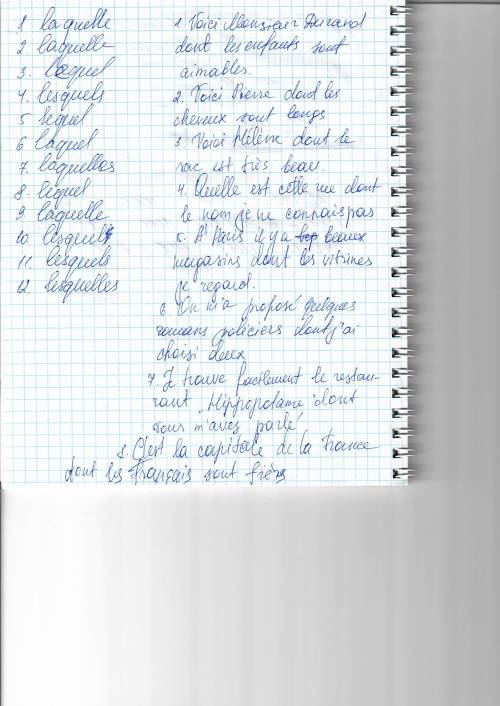 1 laquelle
2 laquelle
3. lequel
4. lesquels
5 lequel
6 laquel
7. laquelles
8. lequel
9. laquelle
10. lesquels
11. lesquels
12. lesquelles
1. Voici Monsieur Durand
dont les enfants sont
aimables.
2. Voici Pierre dont les
cheveux sont longs
3 Voici Hélène dont le
sac est très beau.
4. Quelle est cette rue dont
le nom je ne connais pas
5. A Paris il y a beaux
magasins dont les vitrines
je regard.
6 On m'a proposé quelques
romans policiers dont j'ai
choisi deux
7. Je trouve facilement le restau-
rant "Hippopotame" dont
vous m'avez parlé.
8. C'est la capitale de la France
dont les Français sont fières